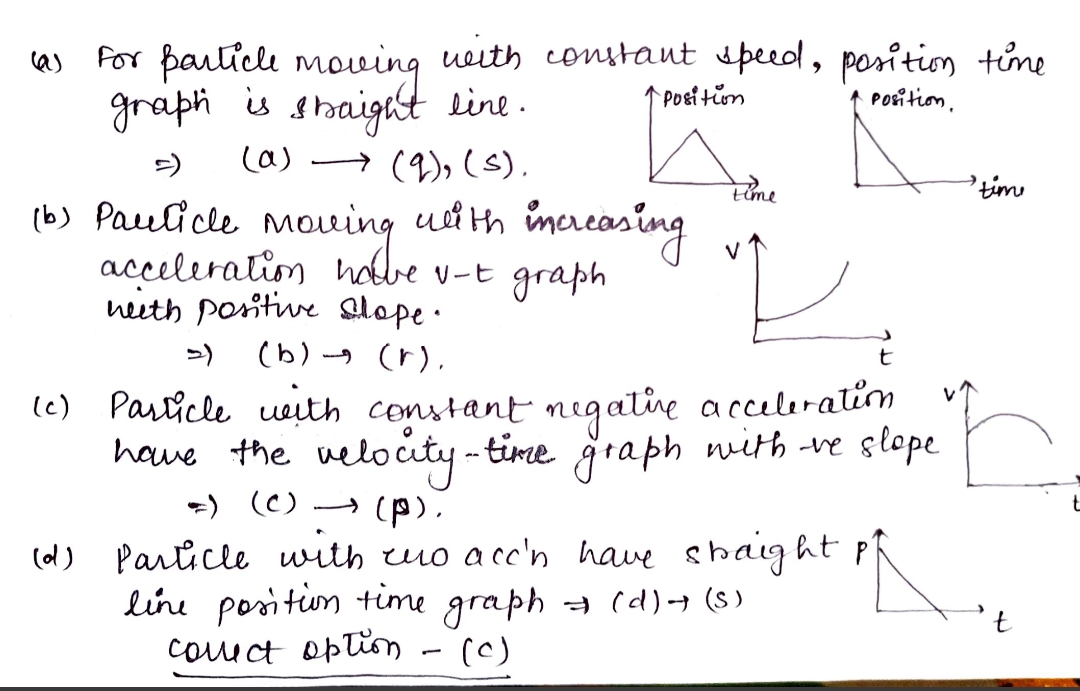 (a) For particle moving with constant speed, position time
graph is straight line.
position
time
position.
time
=) (a) → (q), (s).
(b) Particle moving with increasing
acceleration have v-t graph
with positive slope.
v
t
=) (b) → (r).
(c) Particle with constant negative acceleration
have the velocity-time graph with -ve slope
v
t
=) (c) → (p).
(d) Particle with zero acc'n have straight
line position time graph ⇒ (d) → (s)
P
t
correct option - (c)